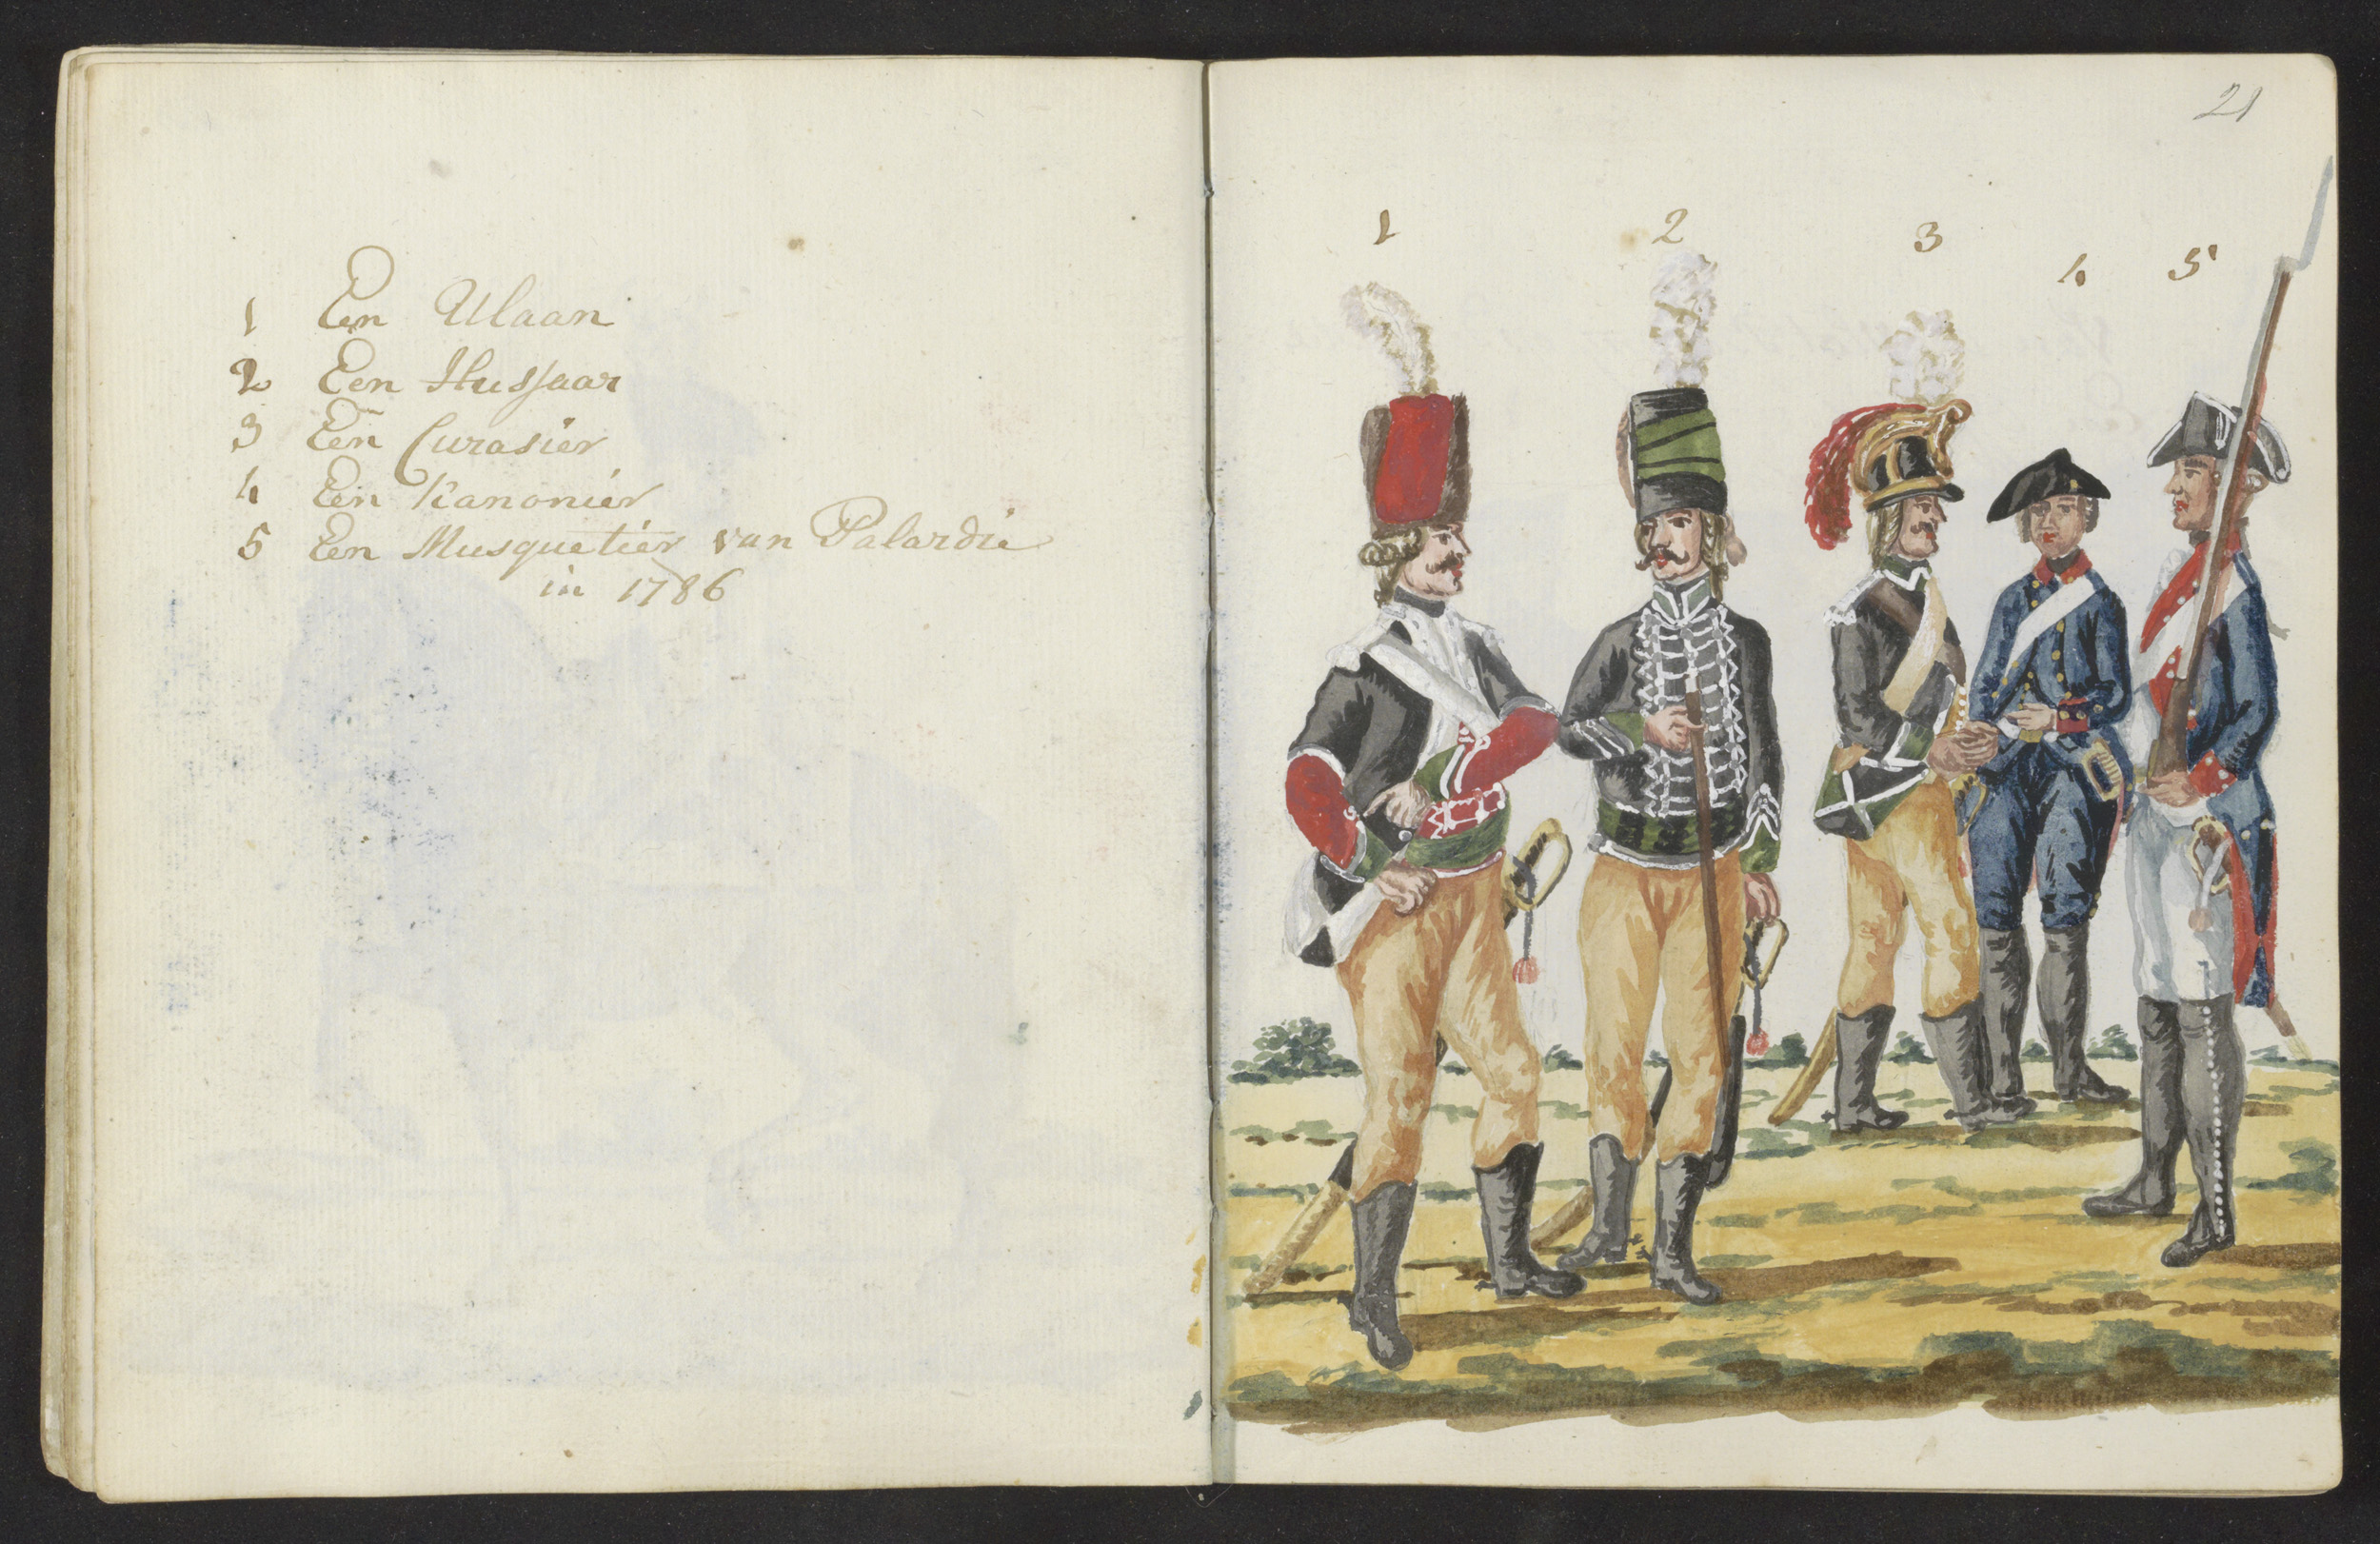 1 Een Ulaan
2 Een Hussaar
3 Een Curasier
4 Een Kanonier
5 Een Musquetier van Palardie
in 1786
21
1 2 3 4 5